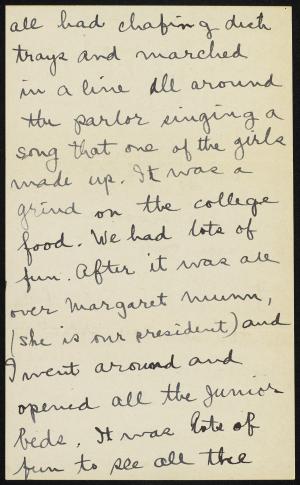 all had chafing dish
trays and marched
in a line all around
the parlor singing a
song that one of the girls
made up. It was a
grind on the college
food. We had lots of
fun. After it was all
over Margaret Munn,
(she is our president) and
I went around and
opened all the Junior
beds. It was lots of
fun to see all the